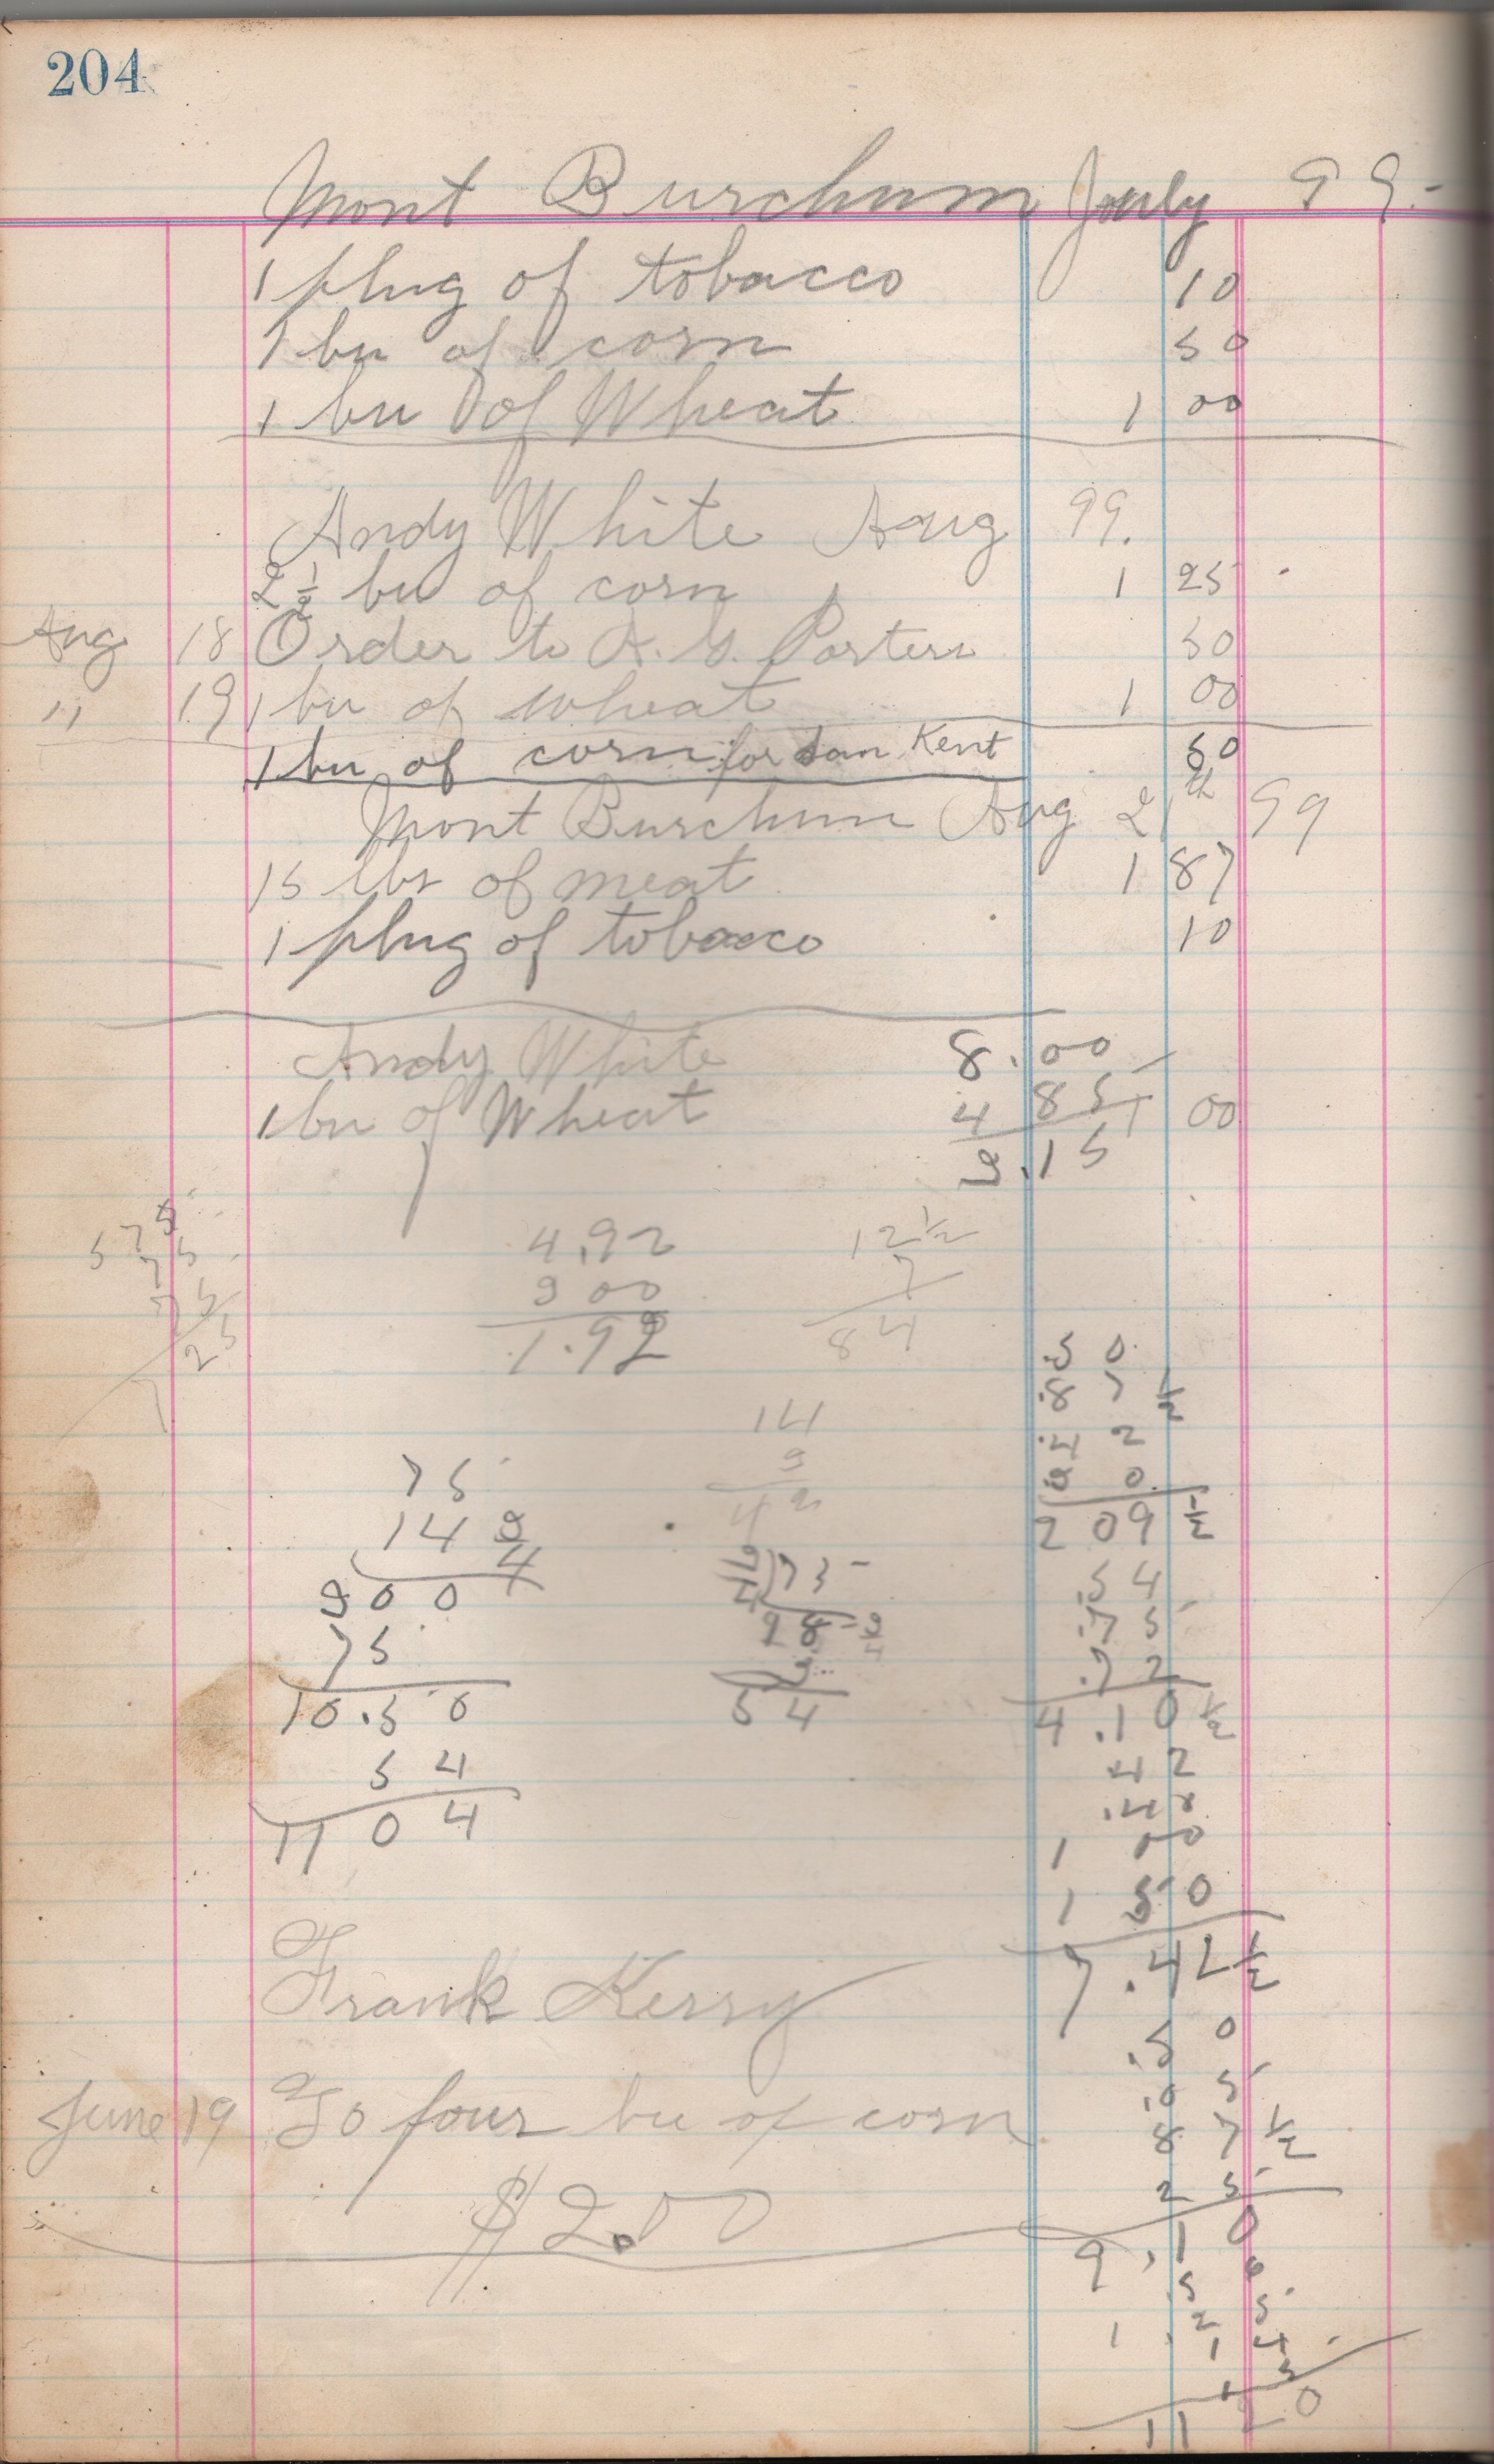 204
Mont Burchum July 99.
1 plug of tobacco 10
1 bu of corn 50
1 bu of Wheat 1 00
Andy White Aug 99.
2 1/2 bu of corn 1 25
Aug 18 Order to A. G. Porters 50
" 19 1 bu of wheat 1 00
1 bu of corn for Sam Kent 50
Mont Burchum Aug 21 99
15 lbs of meat 1 87
1 plug of tobacco 10
Andy White
1 bu of Wheat 1 00
8.00
4 85
3.15
5 75
75
75
7 25
4.92
3 00
1.92
12 1/2
7
84
14
3
42
75
14 3/4
300
75
10.50
54
11 04
3/4 ) 73
18 3/4
3
54
.50
.87 1/2
.42
30
209 1/2
.54
.75
.72
4.10 1/2
42
.40
1 00
1 50
7.42 1/2
.50
.05
87 1/2
25
9.10
50
1.25
14
11 20
Frank Kerry
June 19 To four bu of corn
$2.00